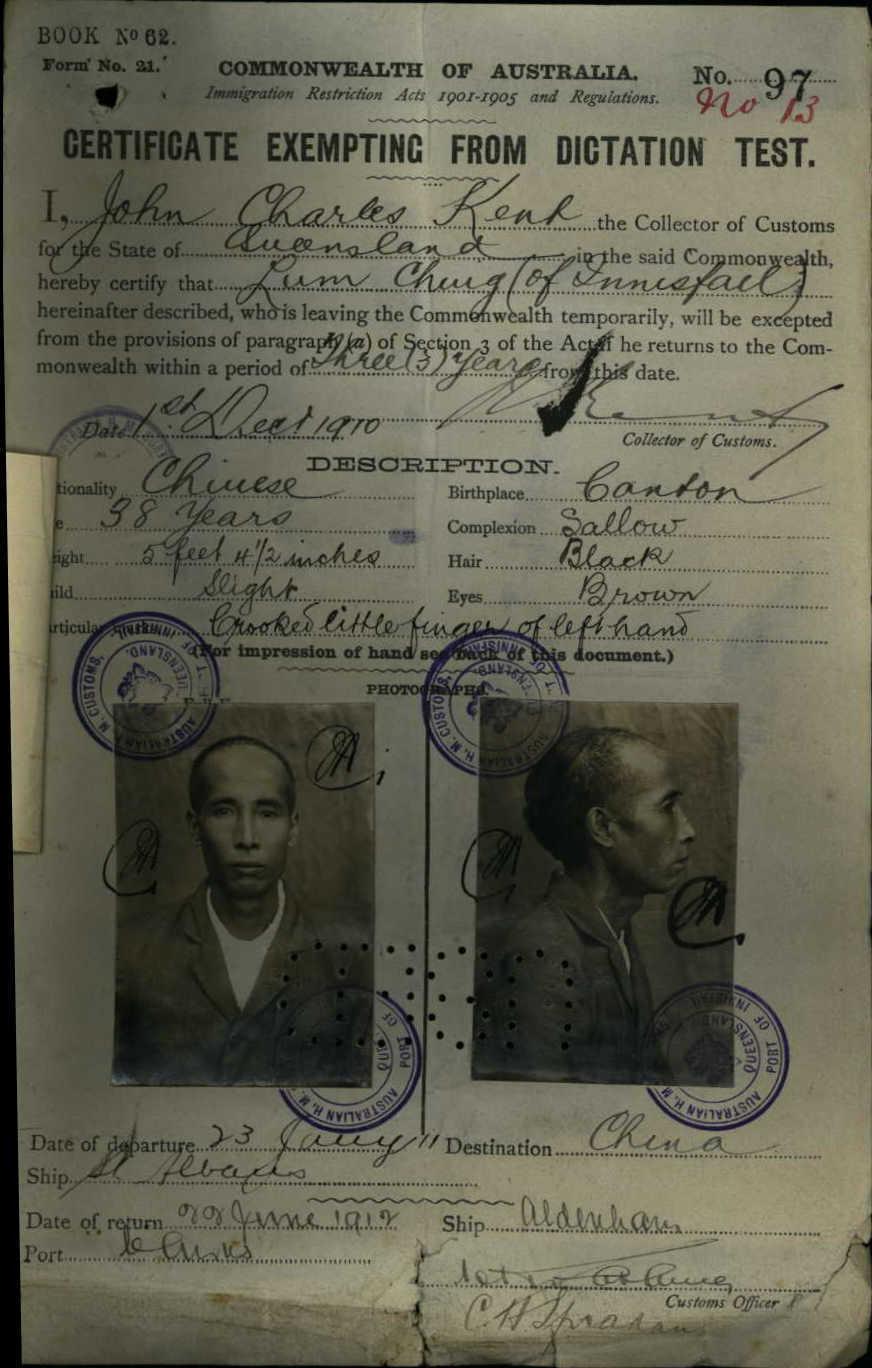 BOOK No 62.
Form No. 21.
COMMONWEALTH OF AUSTRALIA.
No. 97
Immigration Restriction Acts 1901-1905 and Regulations.
No 13
CERTIFICATE EXEMPTING FROM DICTATION TEST.
I, John Charles Kent the Collector of Customs
for the State of Queensland in the said Commonwealth,
hereby certify that Lum Ching (of Innisfail)
hereinafter described, who is leaving the Commonwealth temporarily, will be excepted
from the provisions of paragraph (a) of Section 3 of the Act if he returns to the Com-
monwealth within a period of Three (3) Years from this date.
Date 1st Dect 1910
Collector of Customs.
DESCRIPTION.
tionality Chinese
Birthplace Canton
e 38 Years
Complexion Sallow
ight 5 feet 4 1/2 inches
Hair Black
uild Slight
Eyes Brown
rticular Crooked little finger of left hand
(For impression of hand see back of this document.)
PHOTOGRAPHS.
AUSTRALIAN H. M. CUSTOMS, PORT OF INNISFAIL QUEENSLAND.
AUSTRALIAN H. M. CUSTOMS, PORT OF INNISFAIL QUEENSLAND.
AUSTRALIAN H. M. PORT OF
AUSTRALIAN H. M. PORT OF INNISFAIL QUEENSLAND
Date of departure 23 Jany 11
Destination China
Ship St Albans
Date of return 22 June 1912
Ship Aldenham
Port Cairns
Customs Officer